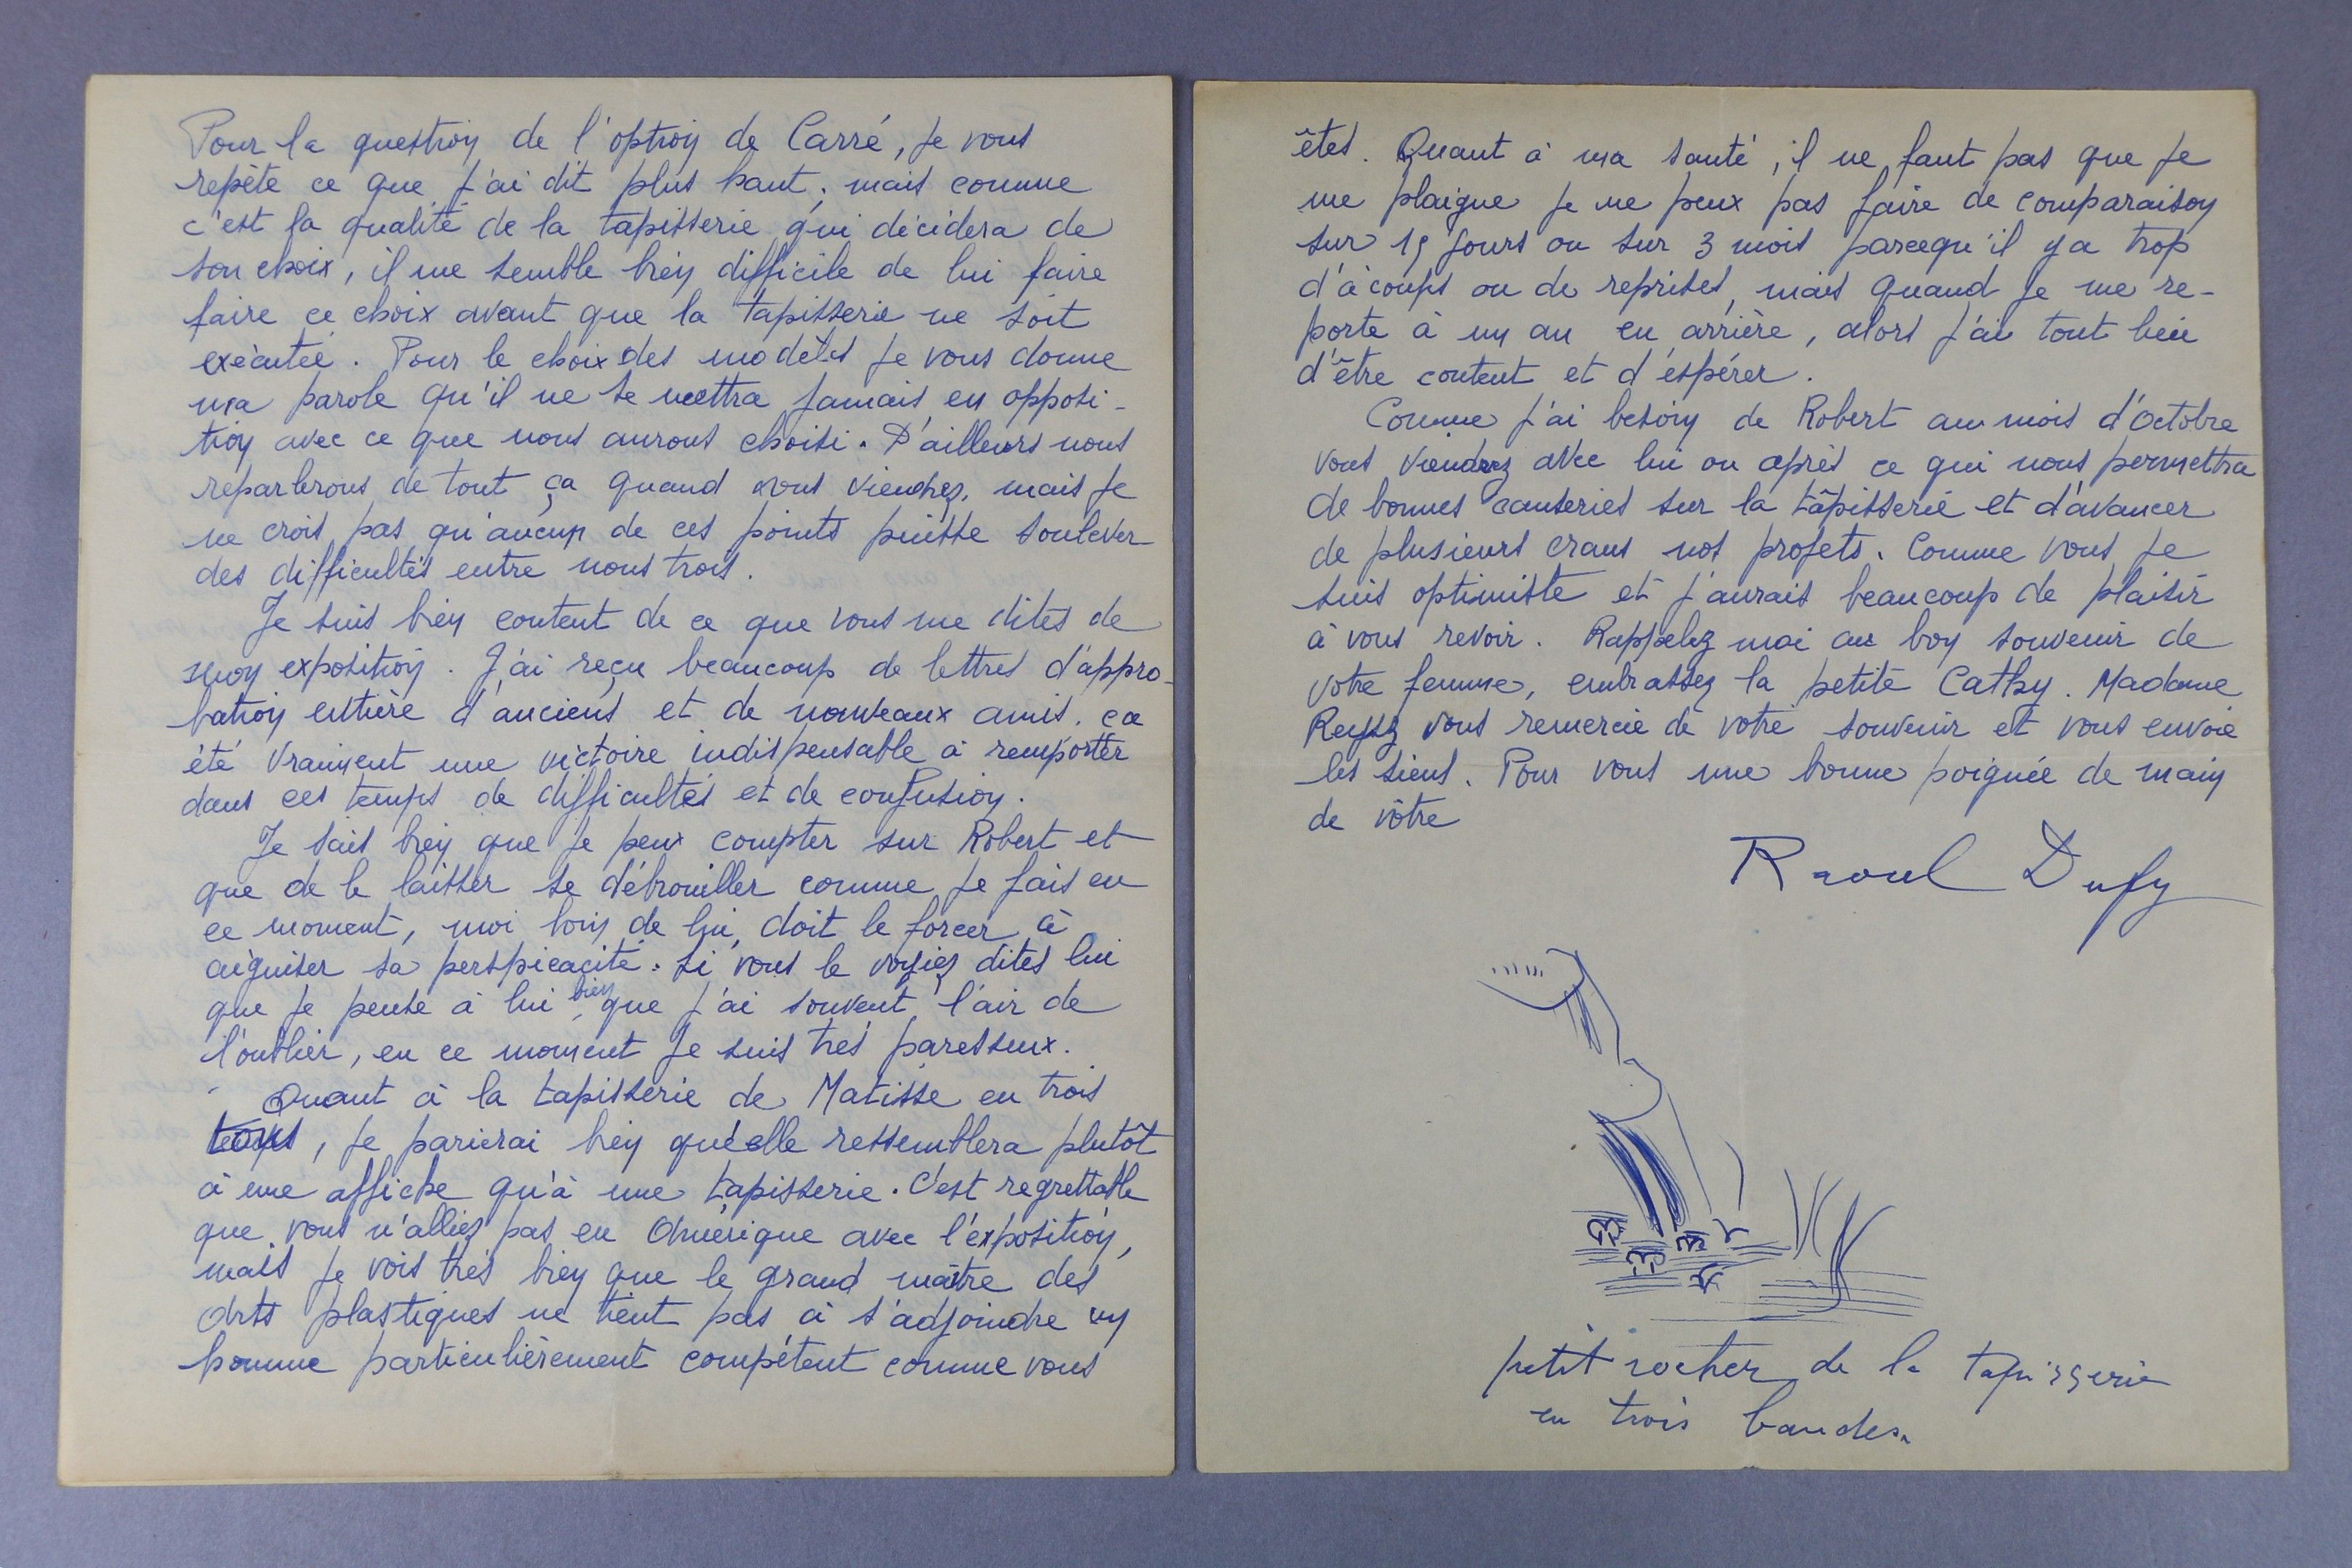 Pour la question de l'option de Carré, je vous
repète ce que j'ai dit plus haut; mais comme
c'est la qualité de la tapisserie qui décidera de
son choix, il me semble bien difficile de lui faire
faire ce choix avant que la tapisserie ne soit
exécutée. Pour le choix des modèles je vous donne
ma parole qu'il ne se mettra jamais en opposi-
tion avec ce que nous aurons choisi. D'ailleurs nous
reparlerons de tout ça quand vous viendrez, mais je
ne crois pas qu'aucun de ces points puisse soulever
des difficultés entre nous trois.
Je suis bien content de ce que vous me dites de
mon exposition. J'ai reçu beaucoup de lettres d'appro-
bation entière d'anciens et de nouveaux amis. ça
été vraiment une victoire indispensable à remporter
dans ces temps de difficultés et de confusion.
Je sais bien que je peux compter sur Robert et
que de le laisser se débrouiller comme je fais en
ce moment, moi loin de lui, doit le forcer à
aiguiser sa perspicacité. Si vous le voyiez dites lui
que je pense à lui bien que j'ai souvent l'air de
l'oublier, en ce moment je suis très paresseux.
Quant à la tapisserie de Matisse en trois
tons, je parierai bien qu'elle ressemblera plutôt
à une affiche qu'à une tapisserie. C'est regrettable
que vous n'alliez pas en Amérique avec l'exposition,
mais je vois très bien que le grand maître des
Arts plastiques ne tient pas à s'adjoindre un
homme particulièrement compétent comme vous
êtes. Quant à ma santé, il ne faut pas que je
me plaigne je ne peux pas faire de comparaison
sur 15 jours ou sur 3 mois parcequ'il y a trop
d'à coups ou de reprises, mais quand je me re-
porte à un an en arrière, alors j'ai tout lieu
d'être content et d'espérer.
Comme j'ai besoin de Robert au mois d'Octobre
vous viendrez avec lui ou après ce qui nous permettra
de bonnes causeries sur la tapisserie et d'avancer
de plusieurs crans nos projets. Comme vous je
suis optimiste et j'aurais beaucoup de plaisir
à vous revoir. Rappelez moi au bon souvenir de
votre femme, embrassez la petite Cathy. Madame
vous remercie de votre souvenir et vous envoie
les siens. Pour vous une bonne poignée de main
de vôtre
Raoul Dufy
petit rocher de la tapisserie
en trois bandes.